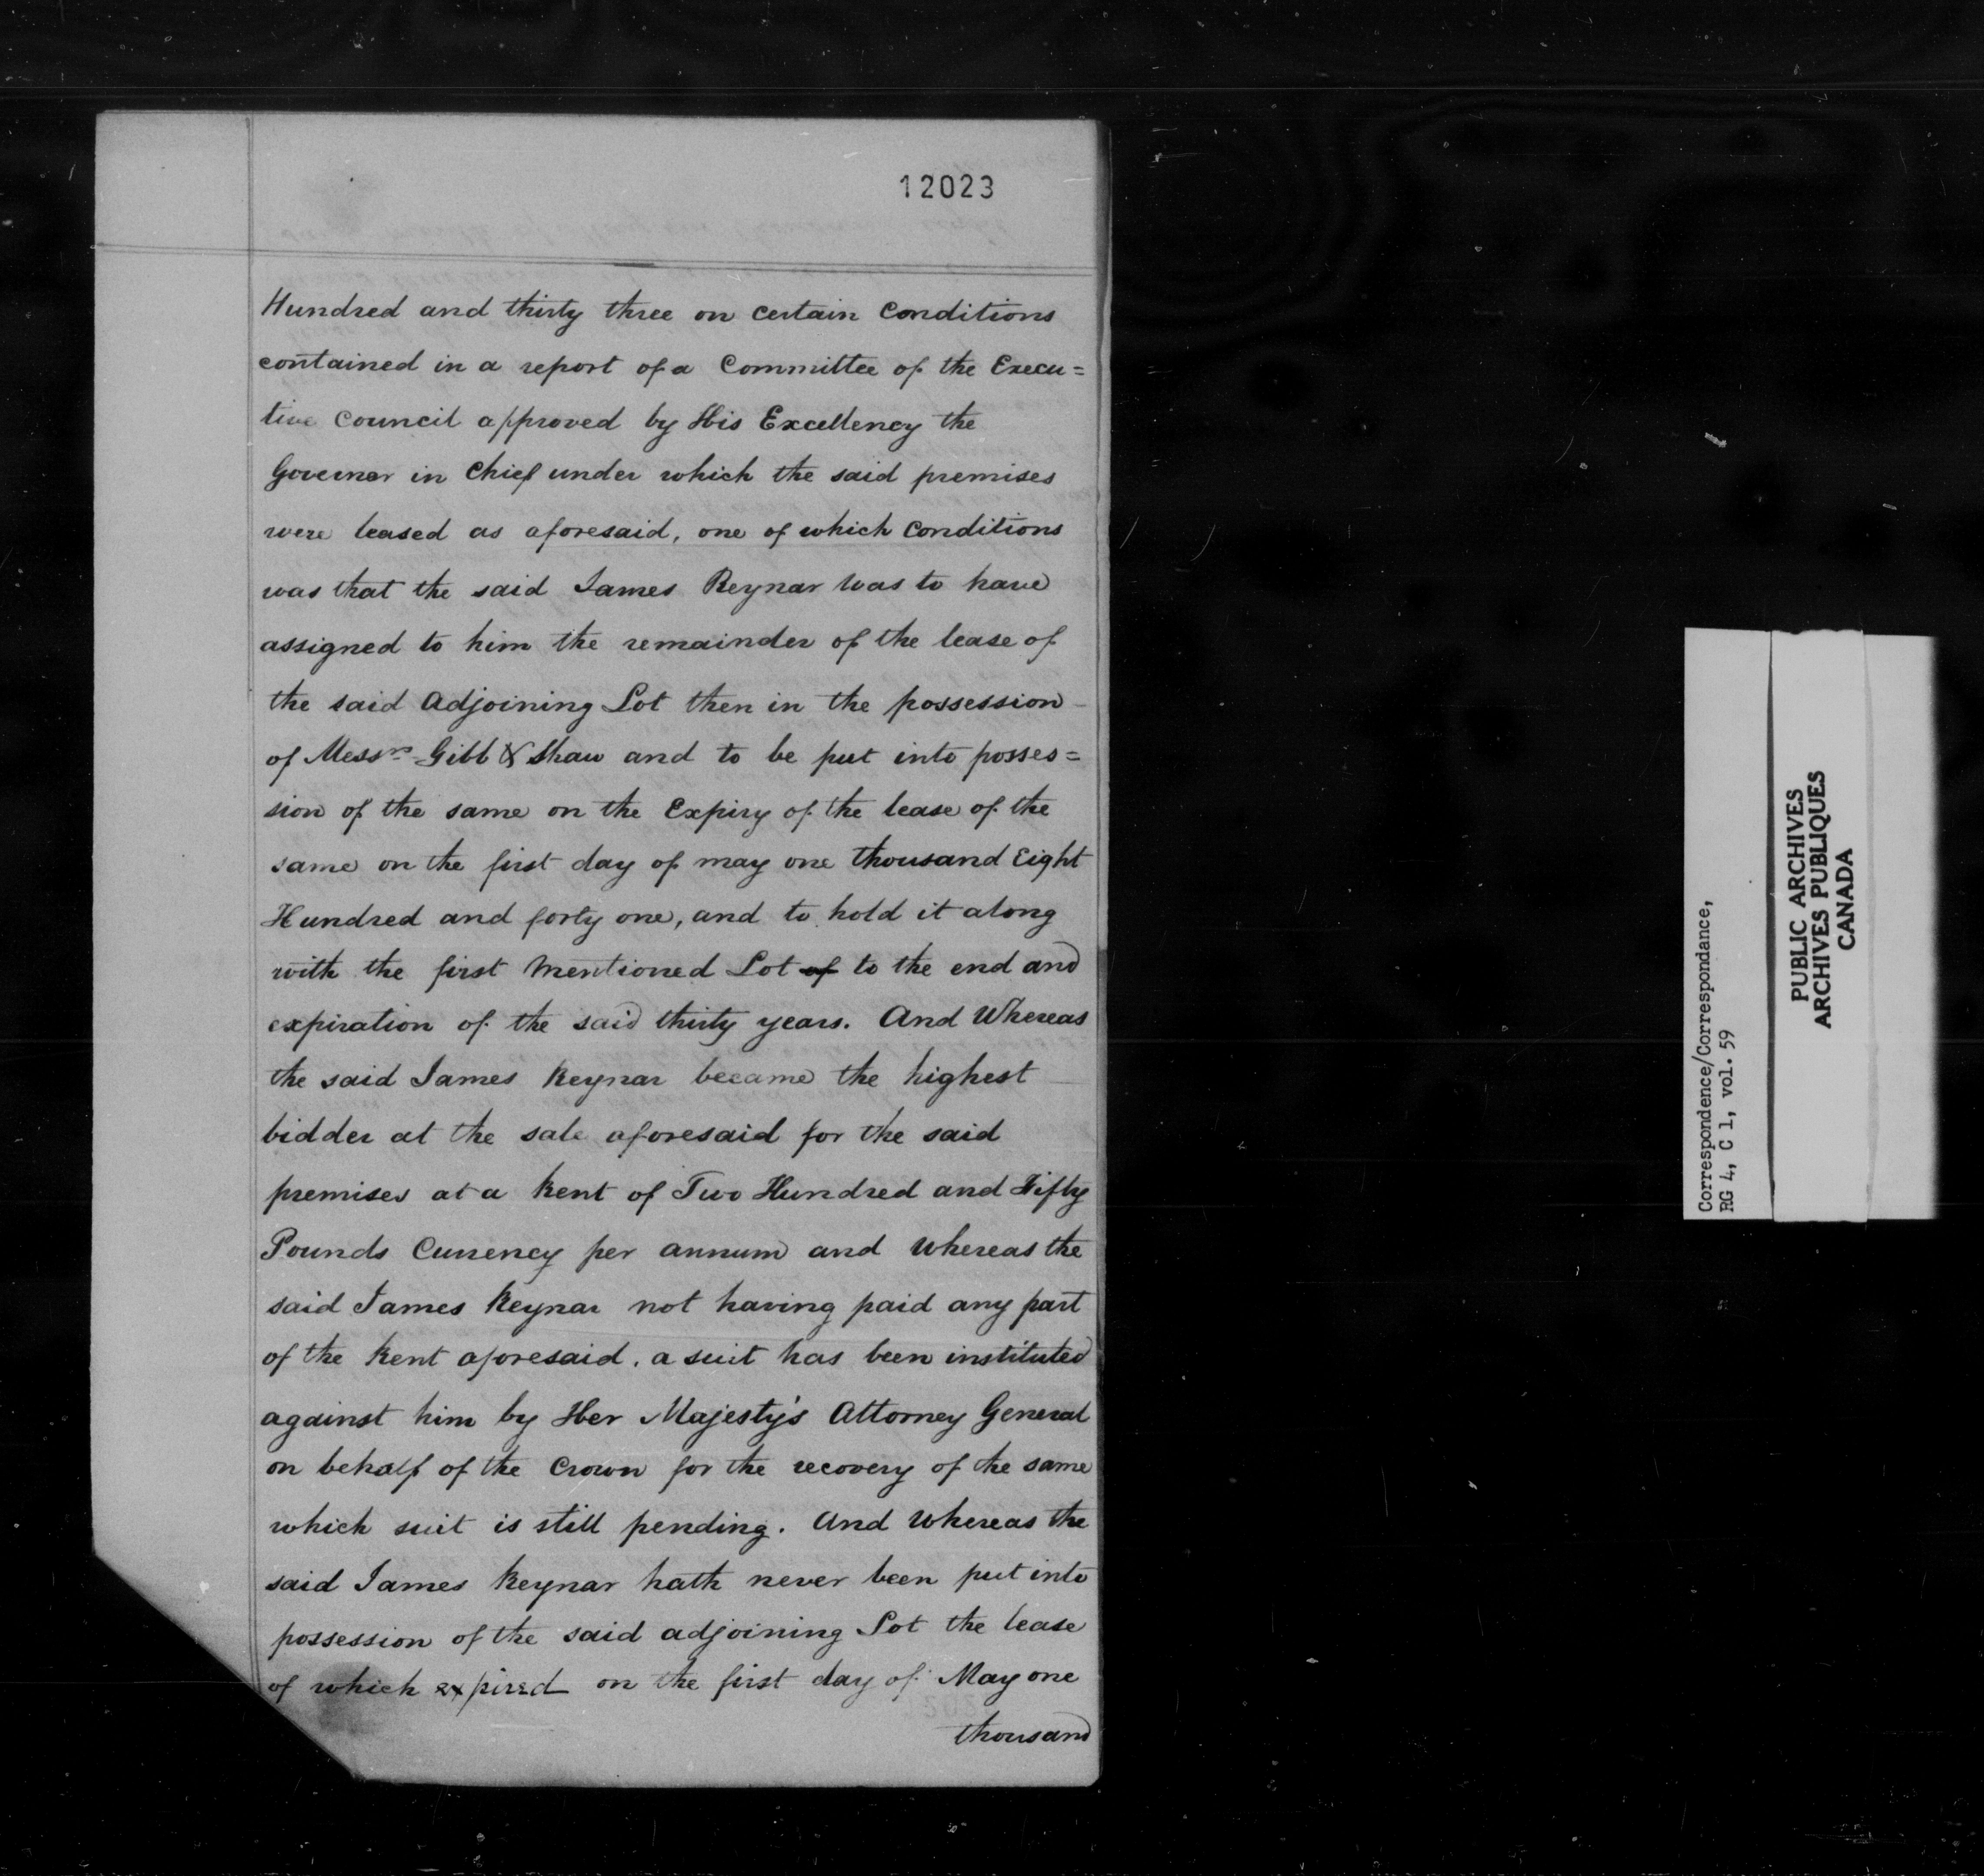 12023
Hundred and thirty three on certain Conditions
contained in a report of a Committee of the Execu=
tive Council approved by His Excellency the
Governor in Chief under which the said premises
were leased as aforesaid, one of which Conditions
was that the said James Reynar was to have
assigned to him the remainder of the lease of
the said Adjoining Lot then in the possession
of Messrs Gibb & Shaw and to be put into posses=
sion of the same on the Expiry of the lease of the
same on the first day of may one thousand Eight
Hundred and forty one, and to hold it along
with the first Mentioned Lot of to the end and
expiration of the said thirty years. And Whereas
the said James Reynar became the highest
bidder at the sale aforesaid for the said
premises at a Rent of Two Hundred and Fifty
Pounds Currency per annum and Whereas the
said James Reynar not having paid any part
of the Rent aforesaid, a suit has been instituted
against him by Her Majesty's Attorney General
on behalf of the Crown for the recovery of the same
which suit is still pending. And Whereas the
said James Reynar hath never been put into
possession of the said adjoining Lot the lease
of which expired on the first day of May one
thousand
Correspondence/Correspondance,
RG 4, C 1, vol. 59
PUBLIC ARCHIVES
ARCHIVES PUBLIQUES
CANADA